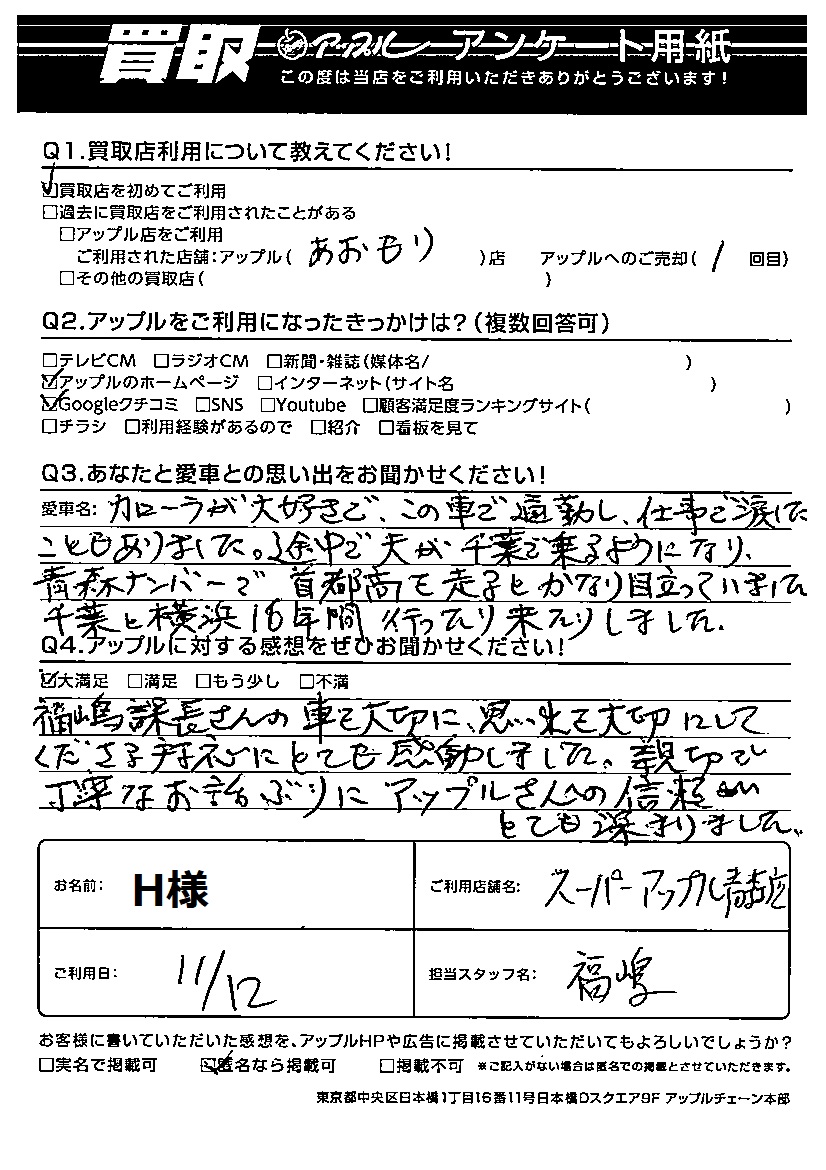 買取 アップル アンケート用紙
この度は当店をご利用いただきありがとうございます!
Q1.買取店利用について教えてください!
☑買取店を初めてご利用
□過去に買取店をご利用されたことがある
□アップル店をご利用
ご利用された店舗:アップル( あおもり )店 アップルへのご売却( 1 回目)
□その他の買取店( )
Q2.アップルをご利用になったきっかけは?(複数回答可)
□テレビCM □ラジオCM □新聞・雑誌(媒体名/ )
☑アップルのホームページ □インターネット(サイト名 )
☑Googleクチコミ □SNS □Youtube □顧客満足度ランキングサイト( )
□チラシ □利用経験があるので □紹介 □看板を見て
Q3.あなたと愛車との思い出をお聞かせください!
愛車名: カローラが大好きで、この車で通勤し、仕事で涙した
こともありました。途中で夫が千葉で乗るようになり、
青森ナンバーで 首都高を走るとかなり目立っていました
千葉と横浜16年間 行ったり来たりしました.
Q4.アップルに対する感想をぜひお聞かせください!
☑大満足 □満足 □もう少し □不満
福嶋課長さんの車を大切に、思い出を大切にして
くださる姿勢にとても感動しました。親切で
丁寧なお話ぶりにアップルさんへの信頼が
とても深まりました。
お名前: H様
ご利用店舗名: スーパーアップル青森店
ご利用日: 11/12
担当スタッフ名: 福嶋
お客様に書いていただいた感想を、アップルHPや広告に掲載させていただいてもよろしいでしょうか?
□実名で掲載可 ☑匿名なら掲載可 □掲載不可 ※ご記入がない場合は匿名での掲載とさせていただきます。
東京都中央区日本橋1丁目16番11号日本橋Dスクエア9F アップルチェーン本部